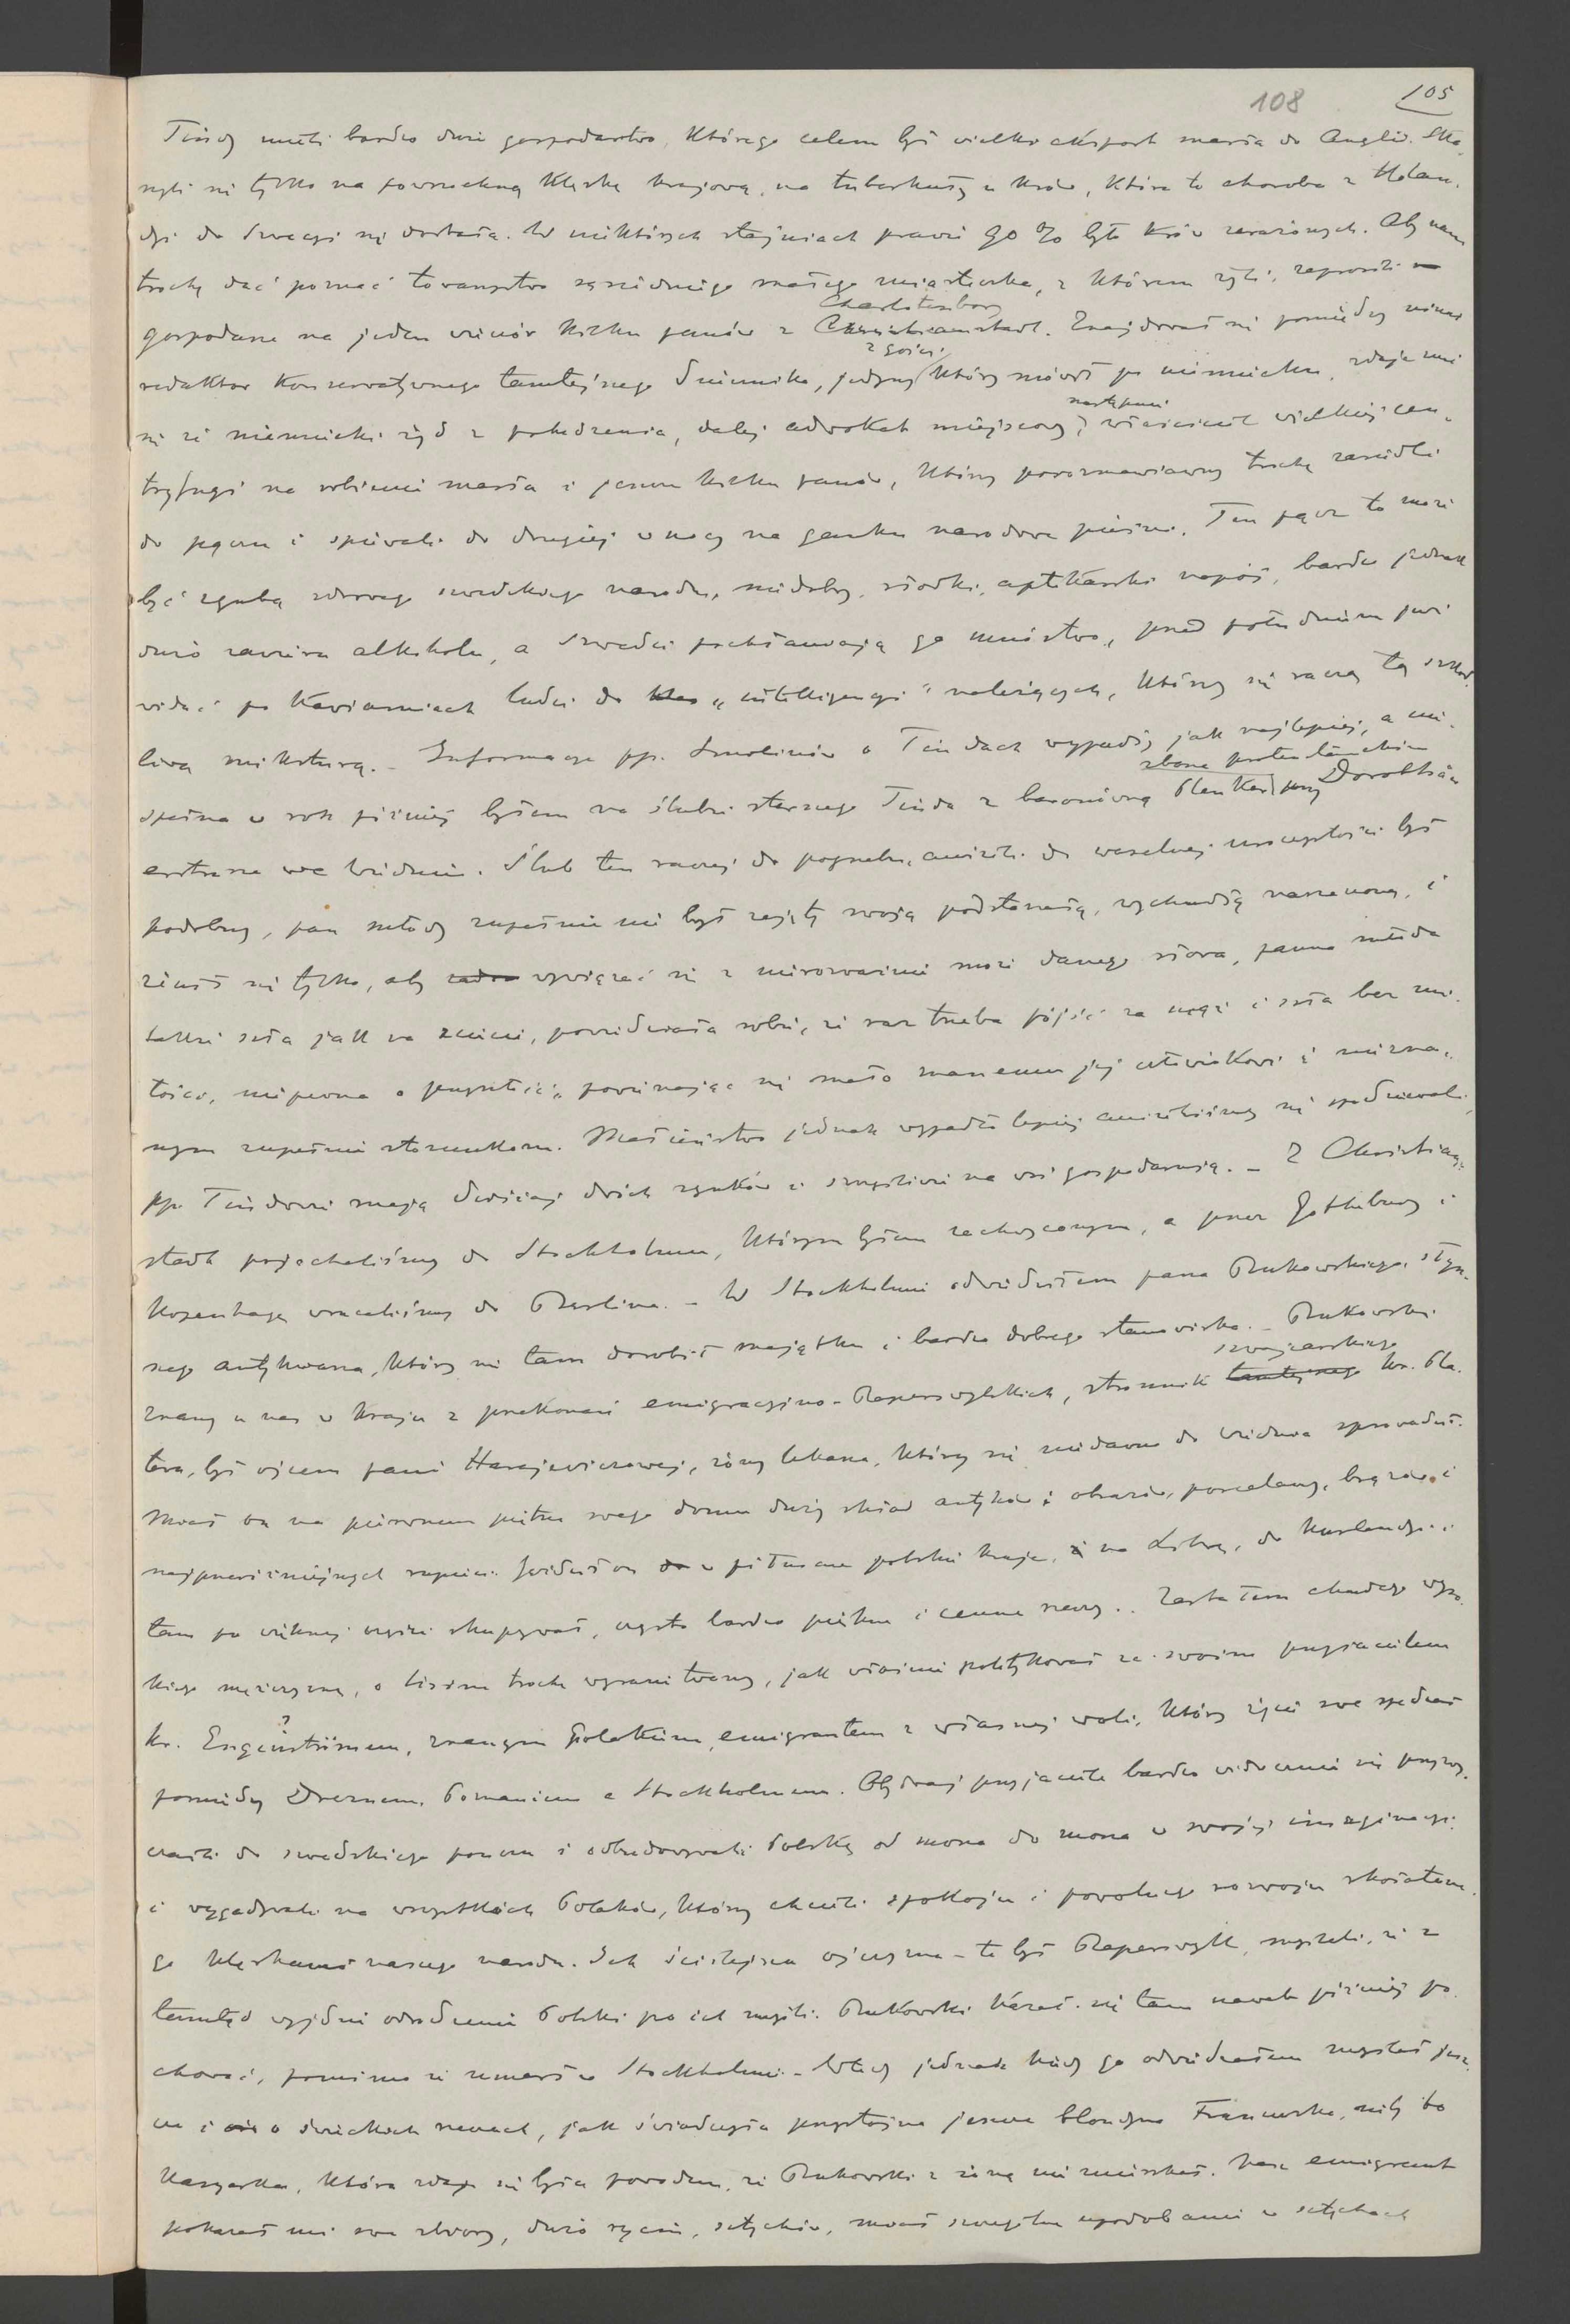 108 105
Tindy mieli bardzo duże gospodarstwo, którego celem był wielki eksport masła do Anglii. Ska-
rżyli się tylko na powszechną klęskę krajową, na tuberkuły u krów, która to choroba z Holan-
dyi do Szwecyi się dostała. W niektórych stajniach prawie 90 % było krów zarażonych. Aby nam
trochę dać poznać towarzystwo sąsiedniego małego miasteczka, z którem żyli, zaprosili
gospodarze na jeden wieczór kilku panów z Charlottenborg Christianstadt. Znajdował się pomiędzy nimi
redaktor konserwatywnego tamtejszego dziennika, jedyny z gości, który mówił po niemiecku, zdaje mi
się że niemiecki żyd z pochodzenia, dalej adwokat miejscowy, następnie właściciel wielkiej cen-
tryfugi na robienie masła i jeszcze kilku panów, którzy porozmawiawszy trochę zasiedli
do pączu i śpiewali do drugiej w nocy na ganku narodowe pieśni. Ten pącz to może
być zgubą zdrowego szwedzkiego narodu, niedobry, słodki, aptekarski napój, bardzo jednak
dużo zawiera alkoholu, a Szwedzi pochłaniają go mnóstwo, przed południem już
widać po kawiarniach ludzi do klas „intelligencyi" należących, którzy się raczą tą szkod-
liwą miksturą. – Informacye pp. Smolinów o Tindach wypadły jak najlepiej, a nie-
spełna w rok później byłem na ślubie starszego Tinda z baronówną Blenker przy zborze protestanckim Dorothéa
erstrasse we Wiedniu. Ślub ten raczej do pogrzebu, aniżeli do weselnej uroczystości był
podobny, pan młody zupełnie nie był zajęty swoją podstarzałą, wychudłą narzeczoną, i
żenił się tylko, aby wywiązać się z nierozważnie może danego słowa, panna młoda
także szła jak na ścięcie, powiedziała sobie, że raz trzeba pójść za mąż i szła bez mi-
łości, niepewna o przyszłość, powierzając się mało znanemu jej człowiekowi i niezna-
nym zupełnie stosunkom. Małżeństwo jednak wypadło lepiej aniżeliśmy się spodziewali,
pp. Tindowie mają dzisiaj dwóch synków i szczęśliwie na wsi gospodarują. – Z Christian-
stadt pojechaliśmy do Stockholmu, którym byłem zachwyconym, a przez Gotheburg i
Kopenhagę wracaliśmy do Berlina. – W Stockholmie odwiedziłem pana Bukowskiego, słyn-
nego antykwarza, który się tam dorobił majątku i bardzo dobrego stanowiska. – Bukowski
znany u nas w kraju z przekonań emigracyjno-Raperswylskich, stronnik tamtejszego szwajcarskiego hr. Pla-
tera, był ojcem pani Harajewiczowej, żony lekarza, który się niedawno do Wiednia sprowadził.
Miał on na pierwszem piętrze swego domu duży skład antyków i obrazów, porcelany, brązów i
najprzeróżniejszych rupieci. Jeździł on w północne polskie kraje, na Litwę, do Kurlandyi i
tam po większej części skupywał, często bardzo piękne i cenne rzeczy. Zastałem chudego wyso-
kiego mężczyznę, o lisim trochę wyrazie twarzy, jak właśnie politykował ze swoim przyjacielem
hr. Engeströmem, znanym Polakiem, emigrantem z własnej woli, który życie swe spędzał
pomiędzy Dreznem, Poznaniem a Stockholmem. Obydwaj przyjaciele bardzo widocznie się przyzwy-
czaili do szwedzkiego ponczu i odbudowywali Polskę od morza do morza w swojej imaginacyi
i wygadywali na wszystkich Polaków, którzy chcieli spokoju i powolnego rozwoju skołatane-
go klęskami naszego narodu. Ich ściślejsza ojczyzna – to był Raperswyll, myśleli, że z
tamtąd wyjdzie odrodzenie Polski po ich myśli. Bukowski kazał się tam nawet później po-
chować, pomimo że umarł w Stockholmie. – Wtedy jednak kiedy go odwiedzałem myślał jesz-
cze i o świeckich rzeczach, jak świadczyła przystojna jeszcze blondyna Francuska, niby to
kasyerka, która zdaje się była powodem, że Bukowski z żoną nie mieszkał. Nasz emigrant
pokazał mi swe zbiory, dużo rycin, sztychów, miał szczególne upodobanie w sztychach